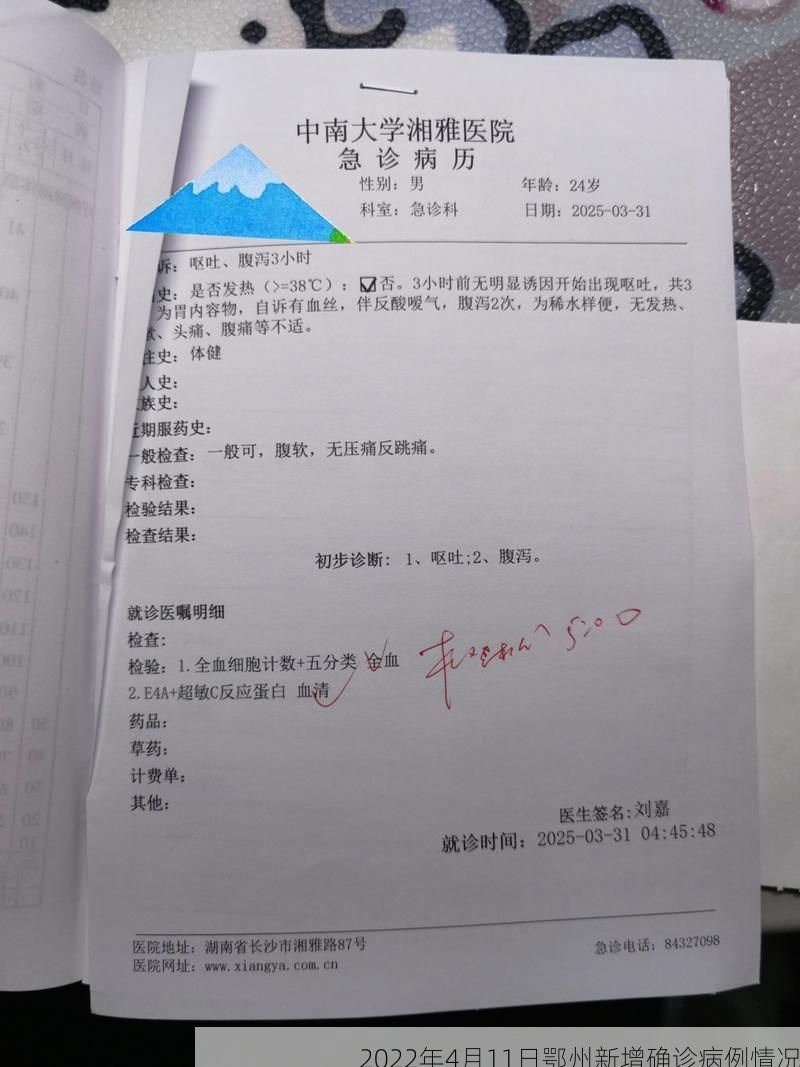 中南大学湘雅医院
急诊病历
性别：男 年龄：24岁
科室：急诊科 日期：2025-03-31
诉：呕吐、腹泻3小时
史：是否发热（>=38℃）：☑否。3小时前无明显诱因开始出现呕吐，共3
为胃内容物，自诉有血丝，伴反酸嗳气，腹泻2次，为稀水样便，无发热、
、头痛、腹痛等不适。
往史：体健
人史：
族史：
近期服药史：
一般检查：一般可，腹软，无压痛反跳痛。
专科检查：
检验结果：
检查结果：
初步诊断：1、呕吐;2、腹泻。
就诊医嘱明细
检查：
检验：1.全血细胞计数+五分类 全血
2.E4A+超敏C反应蛋白 血清
5:00
药品：
草药：
计费单：
其他：
医生签名:刘嘉
就诊时间：2025-03-31 04:45:48
医院地址：湖南省长沙市湘雅路87号 急诊电话：84327098
医院网址：www.xiangya.com.cn
2022年4月11日鄂州新增确诊病例情况